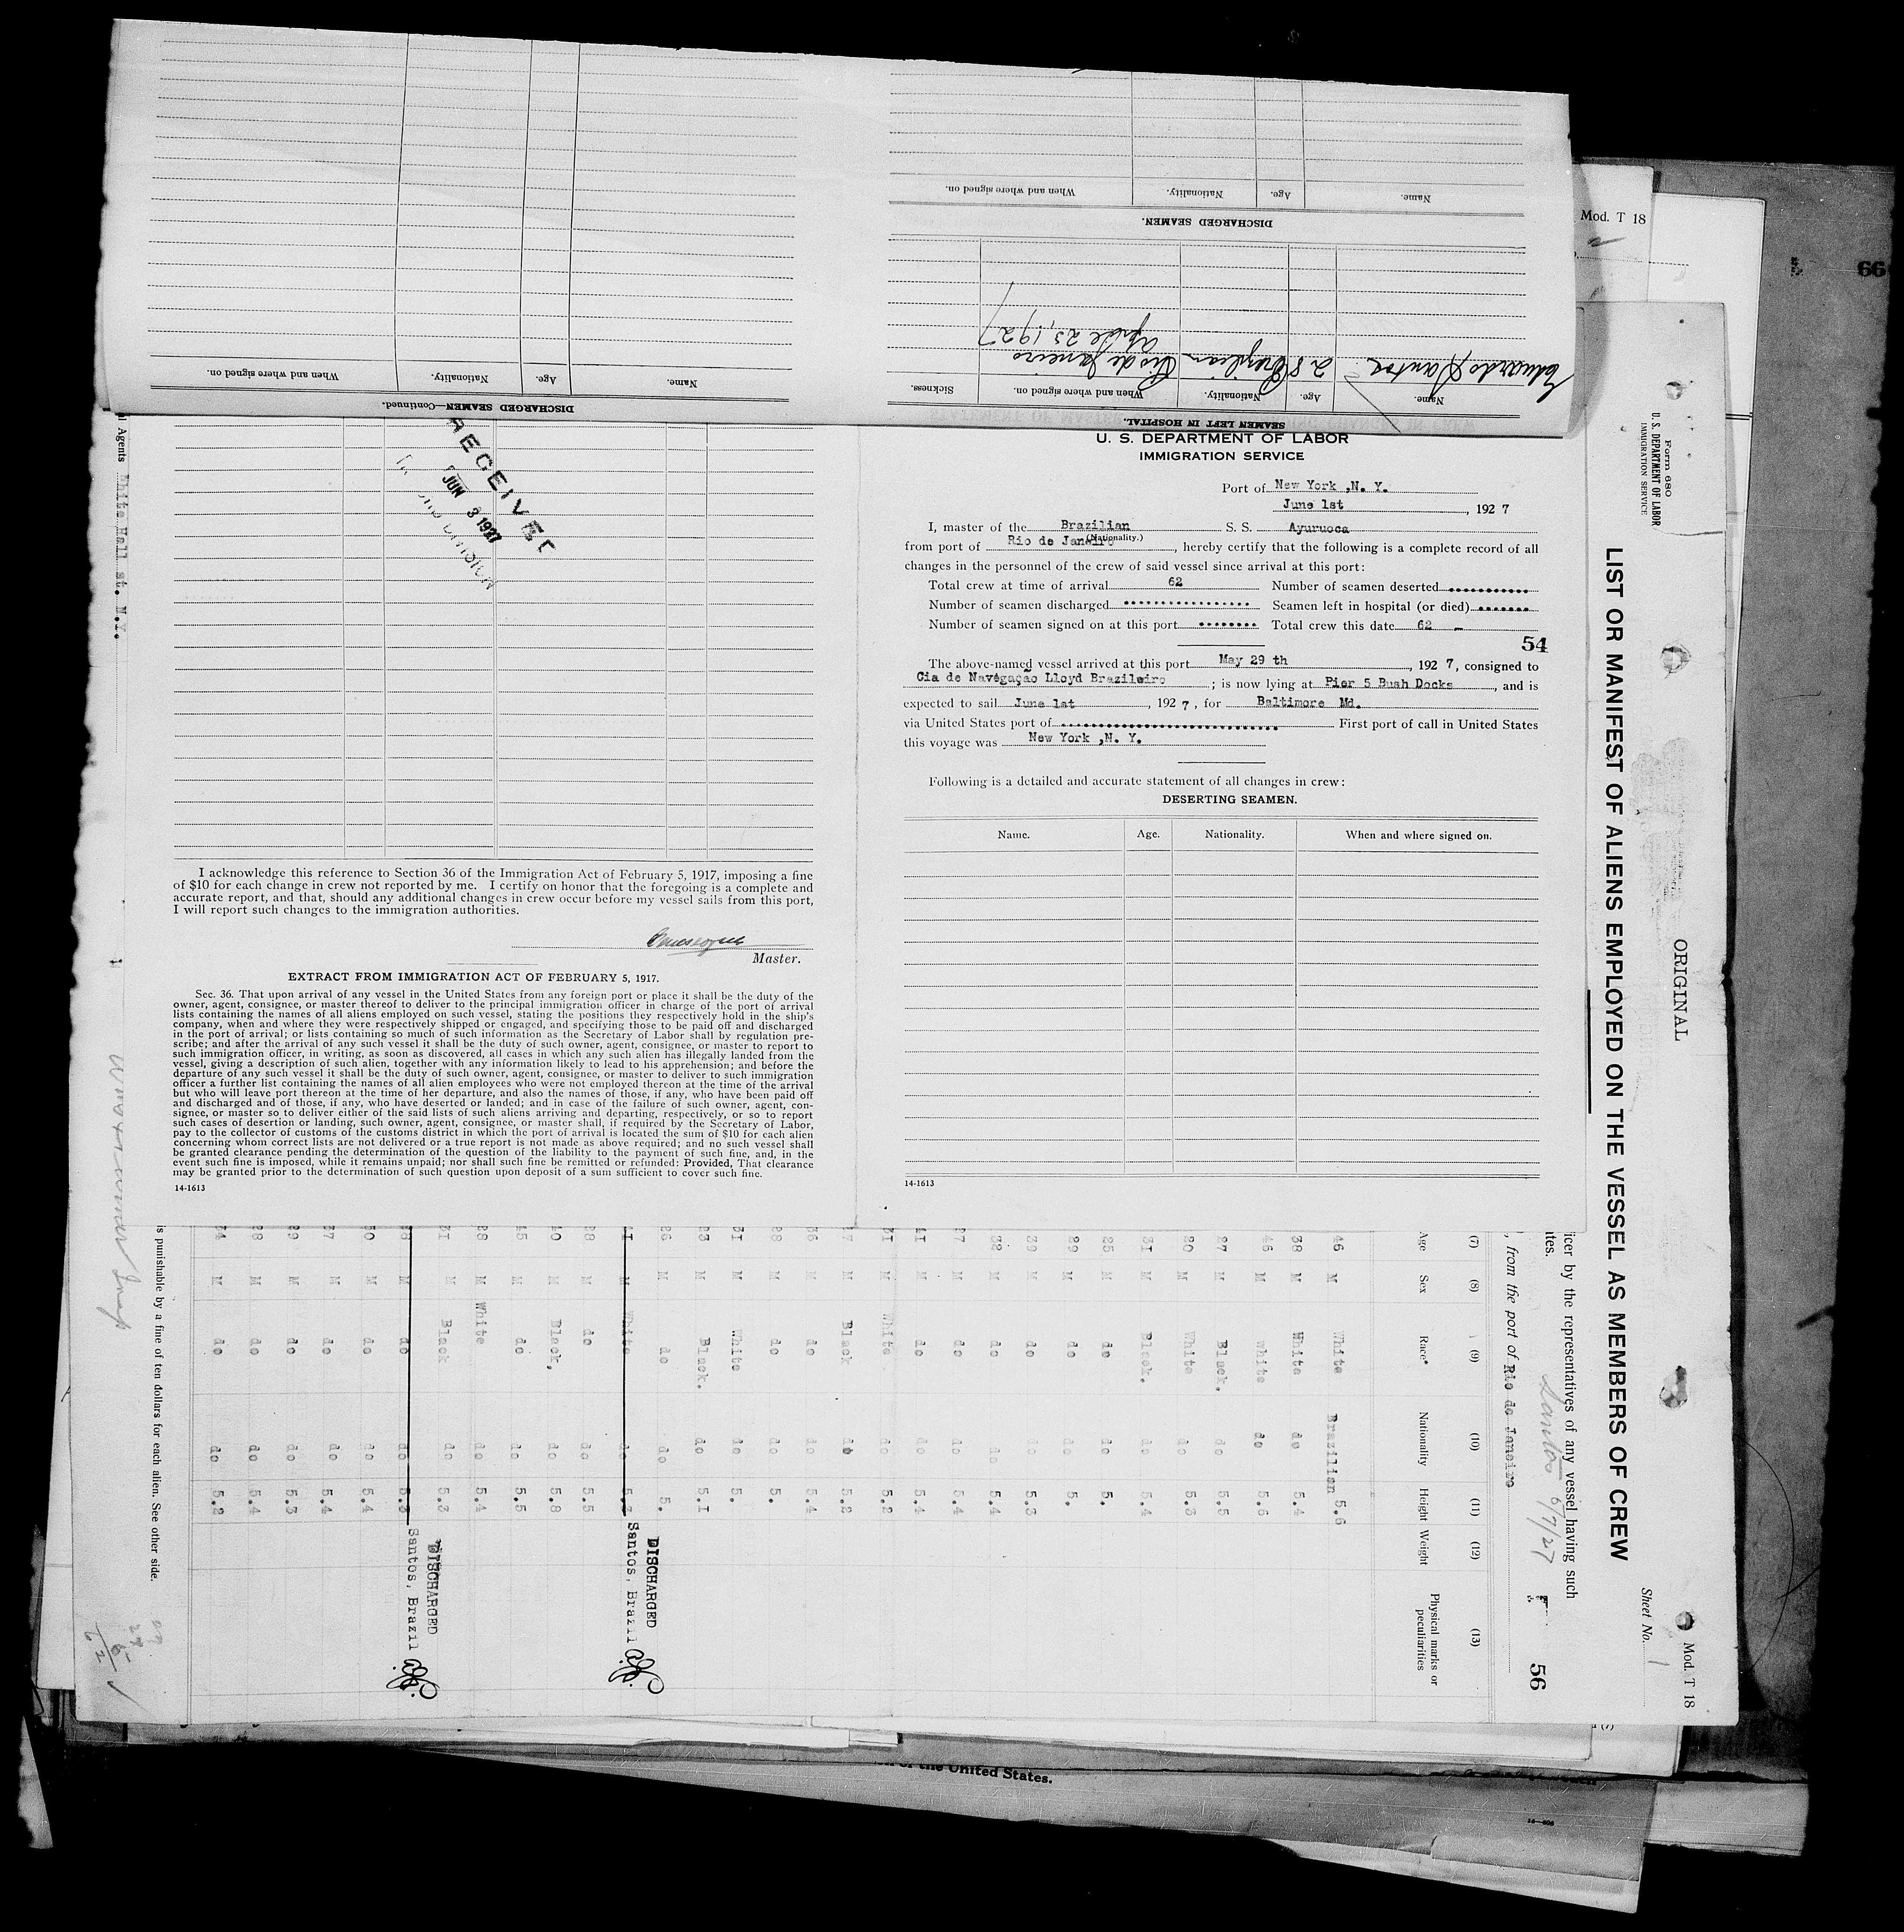 DISCHARGED SEAMEN.
Name.
Age.
Nationality.
When and where signed on.
SEAMEN LEFT IN HOSPITAL.
Name.
Age.
Nationality.
When and where signed on.
Sickness.
Eduardo Santos 28 Brazilian Rio de Janeiro
Aprile 23, 1927
DISCHARGED SEAMEN—Continued.
Name.
Age.
Nationality.
When and where signed on.
Mod. T 18
66
RECEIVED
JUN 3 1927
DIVISION
Agents White Hall st. N.Y.
I acknowledge this reference to Section 36 of the Immigration Act of February 5, 1917, imposing a fine
of $10 for each change in crew not reported by me. I certify on honor that the foregoing is a complete and
accurate report, and that, should any additional changes in crew occur before my vessel sails from this port,
I will report such changes to the immigration authorities.
Master.
EXTRACT FROM IMMIGRATION ACT OF FEBRUARY 5, 1917.
Sec. 36. That upon arrival of any vessel in the United States from any foreign port or place it shall be the duty of the
owner, agent, consignee, or master thereof to deliver to the principal immigration officer in charge of the port of arrival
lists containing the names of all aliens employed on such vessel, stating the positions they respectively hold in the ship's
company, when and where they were respectively shipped or engaged, and specifying those to be paid off and discharged
in the port of arrival; or lists containing so much of such information as the Secretary of Labor shall by regulation pre-
scribe; and after the arrival of any such vessel it shall be the duty of such owner, agent, consignee, or master to report to
such immigration officer, in writing, as soon as discovered, all cases in which any such alien has illegally landed from the
vessel, giving a description of such alien, together with any information likely to lead to his apprehension; and before the
departure of any such vessel it shall be the duty of such owner, agent, consignee, or master to deliver to such immigration
officer a further list containing the names of all alien employees who were not employed thereon at the time of the arrival
but who will leave port thereon at the time of her departure, and also the names of those, if any, who have been paid off
and discharged and of those, if any, who have deserted or landed; and in case of the failure of such owner, agent, con-
signee, or master so to deliver either of the said lists of such aliens arriving and departing, respectively, or so to report
such cases of desertion or landing, such owner, agent, consignee, or master shall, if required by the Secretary of Labor,
pay to the collector of customs of the customs district in which the port of arrival is located the sum of $10 for each alien
concerning whom correct lists are not delivered or a true report is not made as above required; and no such vessel shall
be granted clearance pending the determination of the question of the liability to the payment of such fine, and, in the
event such fine is imposed, while it remains unpaid; nor shall such fine be remitted or refunded: Provided, That clearance
may be granted prior to the determination of such question upon deposit of a sum sufficient to cover such fine.
14-1613
U. S. DEPARTMENT OF LABOR
IMMIGRATION SERVICE
Port of New York ,N. Y.
June 1st, 1927
I, master of the Brazilian S. S. Ayuruoca
(Nationality.)
from port of Rio de Janeiro, hereby certify that the following is a complete record of all
changes in the personnel of the crew of said vessel since arrival at this port:
Total crew at time of arrival 62 Number of seamen deserted
Number of seamen discharged Seamen left in hospital (or died)
Number of seamen signed on at this port Total crew this date 62 -
54
The above-named vessel arrived at this port May 29 th, 1927, consigned to
Cia de Navegação Lloyd Brazileiro; is now lying at Pier 5 Bush Docks, and is
expected to sail June 1st, 1927, for Baltimore Md.
via United States port of First port of call in United States
this voyage was New York ,N. Y.
Following is a detailed and accurate statement of all changes in crew:
DESERTING SEAMEN.
Name. Age. Nationality. When and where signed on.
14-1613
Form 680
U. S. DEPARTMENT OF LABOR
IMMIGRATION SERVICE
ORIGINAL
Mod. T 18
LIST OR MANIFEST OF ALIENS EMPLOYED ON THE VESSEL AS MEMBERS OF CREW
Sheet No. 1
icer by the representatives of any vessel having such
tes.
, from the port of Rio de Janeiro
Santos 6/7/27
56
(7) (8) (9) (10) (11) (12) (13)
Age Sex Race* Nationality Height Weight Physical marks or
peculiarities
46 M White Brazilian 5.6
38 M White do 5.4
46 M white do 5.6
27 M Black. do 5.5
20 M White do 5.3
31 M Black. do 5.4
25 M do do 5.
29 M do do 5.
39 M do do 5.3
32 M do do 5.4
37 M do do 5.4
41 M do do 5.4
31 M White do 5.2
M Black do 5.2
M do do 5.4
M do do 5.
M White do 5.
M Black. do 5.1
M do do 5.
M White do 5.3
DISCHARGED
Santos, Brazil
M do do 5.5
M Black, do 5.8
M do do 5.5
M White do 5.4
M Black do 5.3
M do do 5.3
DISCHARGED
Santos, Brazil
M do do 5.4
M do do 5.4
M do do 5.3
M do do 5.4
M do do 5.2
is punishable by a fine of ten dollars for each alien. See other side.
of the United States.